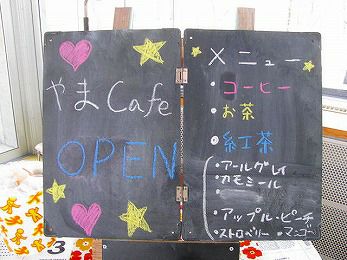 やまCafe
OPEN
メニュー
・コーヒー
・お茶
・紅茶
・アールグレイ
・カモミール
・
・アップル・ピーチ
・ストロベリー ・マンゴー
3